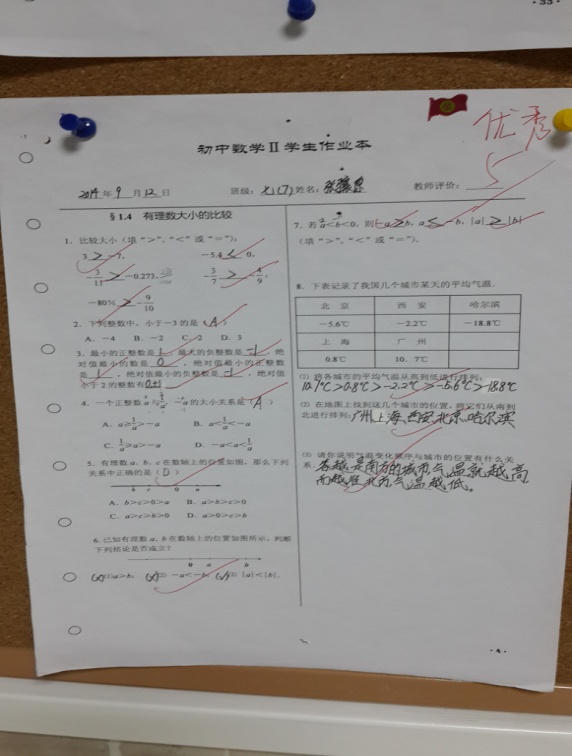 ·33·
优秀
5
初中数学Ⅱ学生作业本
2019年9月12日 班级：七(7)姓名： 教师评价：
§1.4 有理数大小的比较
1．比较大小（填“＞”，“＜”或“＝”）：
3 > -7， -5.4 < 0，
-3/11 > -0.273， -3/7 > -4/9，
-80% > -9/10
2．下列整数中，小于-3的是（A）
A．-4 B．-2 C．2 D．3
3．最小的正整数是1，最大的负整数是-1，绝
对值最小的数是0，绝对值最小的正整数
是1，绝对值最小的负整数是-1，绝对值
小于2的整数有0±1
4．一个正整数a与1/a，-a的大小关系是（A）
A．a≥1/a>-a B．a<1/a<-a
C．1/a≥a>-a D．-a<a<1/a
5．有理数a，b，c在数轴上的位置如图，那么下列
关系中正确的是（D）
b c 0 a
A．b>c>0>a B．a>b>c>0
C．a>c>b>0 D．a>0>c>b
6．已知有理数a，b在数轴上的位置如图所示，判断
下列结论是否成立？
0 a b
(×)(1)a>b， (×)(2) -a<-b， (√)(3) |a|<|b|．
7．若a<b<0，则-a > -b，|a| > |b|
（填“＞”，“＜”或“＝”）．
8．下表记录了我国几个城市某天的平均气温．
北 京 西 安 哈尔滨
-5.6℃ -2.2℃ -18.8℃
上 海 广 州
0.8℃ 10．7℃
(1) 将各城市的平均气温从高到低进行排列；
10.7℃>0.8℃>-2.2℃>-5.6℃>-18.8℃
(2) 在地图上找到这几个城市的位置，将它们从南到
北进行排列；广州上海、西安、北京、哈尔滨
(3) 请你说明气温变化顺序与城市的位置有什么关
系．答越是南方的城市气温就越高
而越往北方气温越低。
·4·